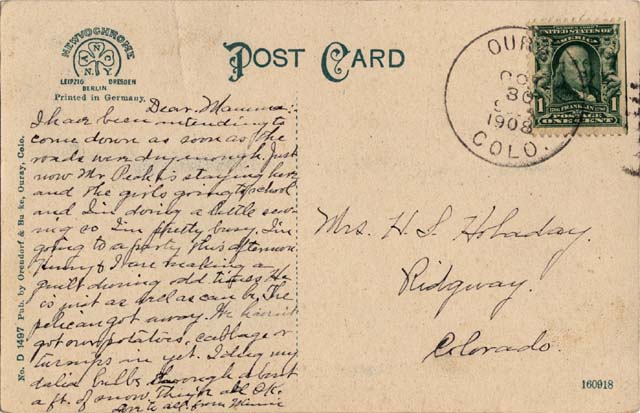 NEWVOCHROME
A N C
N.Y.
LEIPZIG DRESDEN
BERLIN
Printed in Germany.
POST CARD
OURAY
OCT
30
1908
COLO.
SERIES 1902
UNITED STATES OF AMERICA
1 FRANKLIN 1
POSTAGE
ONE CENT
Dear Mamma:
I have been intending to
come down as soon as the
roads were dry enough. Just
now Mr Peck is staying here
and the girls going to school
and I'm doing a little sew-
ing so I'm pretty busy. I'm
going to a party this afternoon.
I are making a
quilt during odd times. He
is just as well as can be. The
pelican got away. We havn't
got our potatoes, cabbage or
turnips in yet. I dug my
dalia bulbs through about
a ft. of snow. They're all O.K.
Love to all, from Minnie
Mrs. H. S. Holaday.
Ridgway.
Colorado.
No. D 1497 Pub. by Orendorf & Burke, Ouray, Colo.
160918